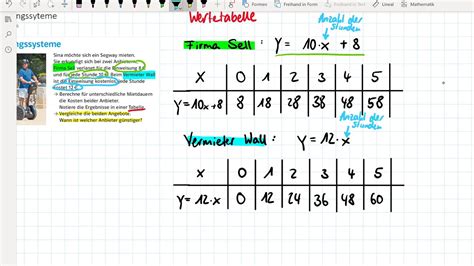 Freihand in Form
Freihand in Text
Lineal
Mathematik
ngssysteme
Wertetabelle
Anzahl der
Stunden
Firma Sell : y = 10·x + 8
ungssysteme
Sina möchte sich ein Segway mieten.
Sie erkundigt sich bei zwei Anbietern.
Firma Sell verlangt für die Einweisung 8 €
und für jede Stunde 10 €. Beim Vermieter Wall
ist die Einweisung kostenlos, jede Stunde
kostet 12 €.
→ Berechne für unterschiedliche Mietdauern
die Kosten beider Anbieter.
Notiere die Ergebnisse in einer Tabelle.
→ Vergleiche die beiden Angebote.
Wann ist welcher Anbieter günstiger?
x 0 1 2 3 4 5
y=10x+8 8 18 28 38 48 58
Anzahl der
Stunden
Vermieter Wall : y = 12·x
x 0 1 2 3 4 5
y=12·x 0 12 24 36 48 60